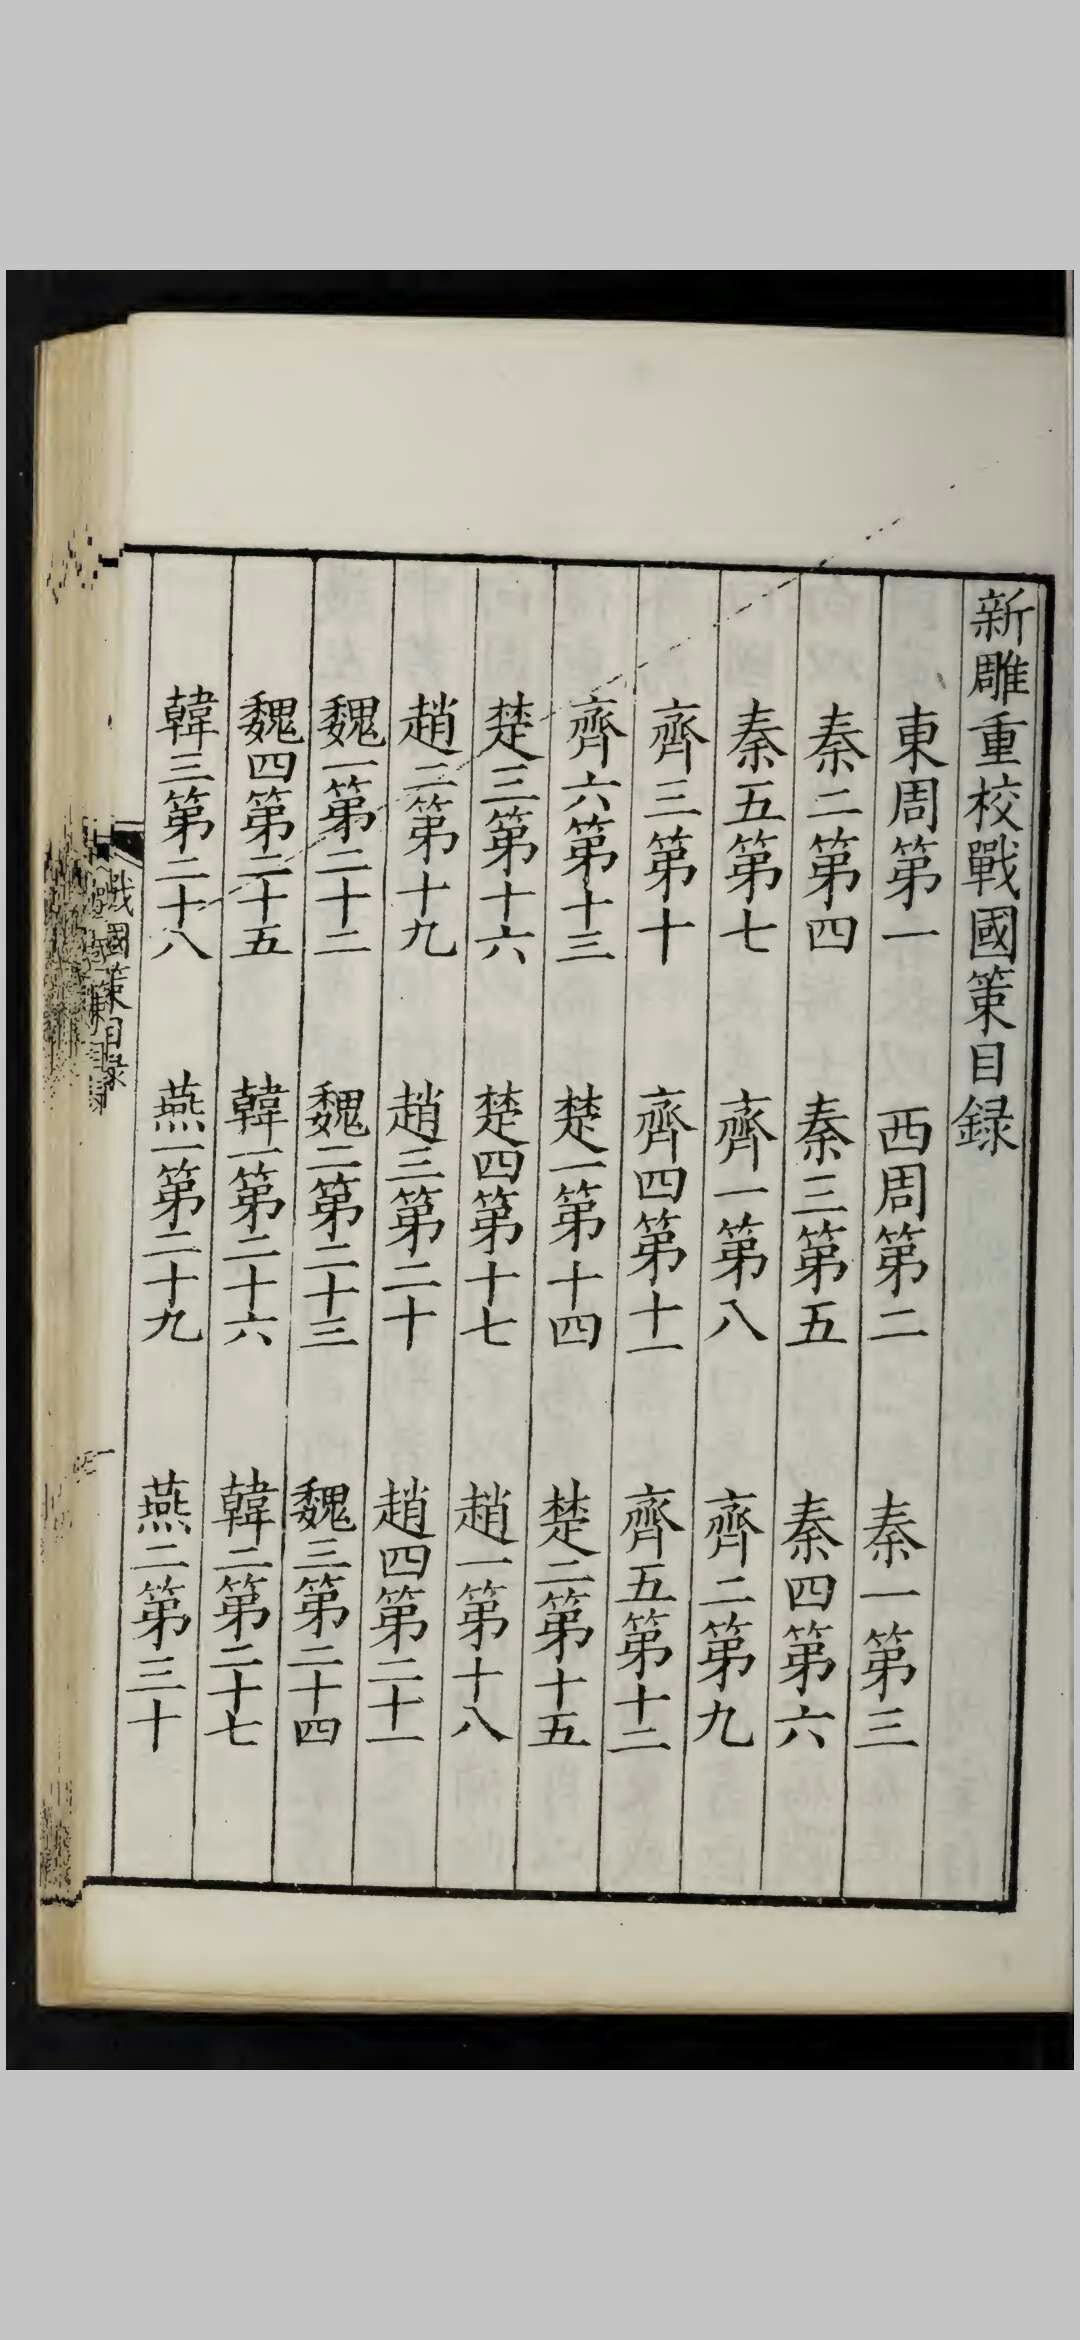 新雕重校戰國策目録
東周第一　西周第二　秦一第三
秦二第四　秦三第五　秦四第六
秦五第七　齊一第八　齊二第九
齊三第十　齊四第十一　齊五第十二
齊六第十三　楚一第十四　楚二第十五
楚三第十六　楚四第十七　趙一第十八
趙二第十九　趙三第二十　趙四第二十一
魏一第二十二　魏二第二十三　魏三第二十四
魏四第二十五　韓一第二十六　韓二第二十七
韓三第二十八　燕一第二十九　燕二第三十
戰國策目録